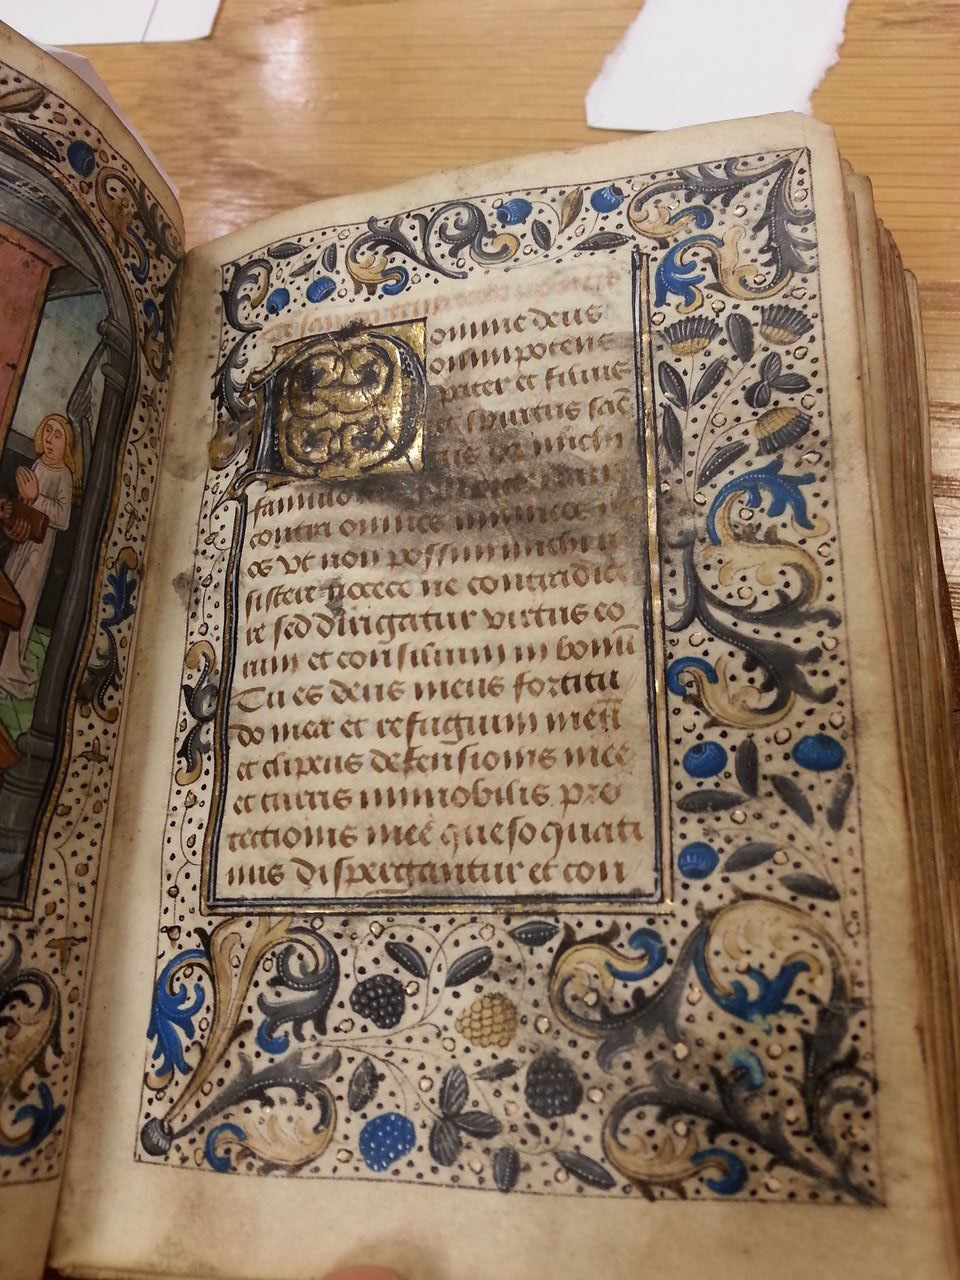 D omine deus
omnipotens
pater et filius
et spiritus sāc
michi
famulo
contra omnes inimicos
os vt non possint michi
sistere nocere ne contradice
re sed dirigatur virtus eo
rum et consilium in bonū
Tu es deus meus fortitu
do mea et refugium meū
et clipeus defensionis mee
et turris immobilis pro
tectionis mee queso quati
nus dispergantur et con